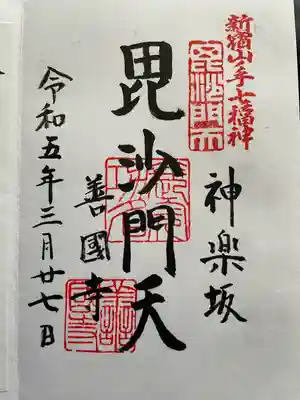 新宿山手七福神
毘沙門天
神楽坂
毘沙門天
善國寺
令和五年三月廿七日